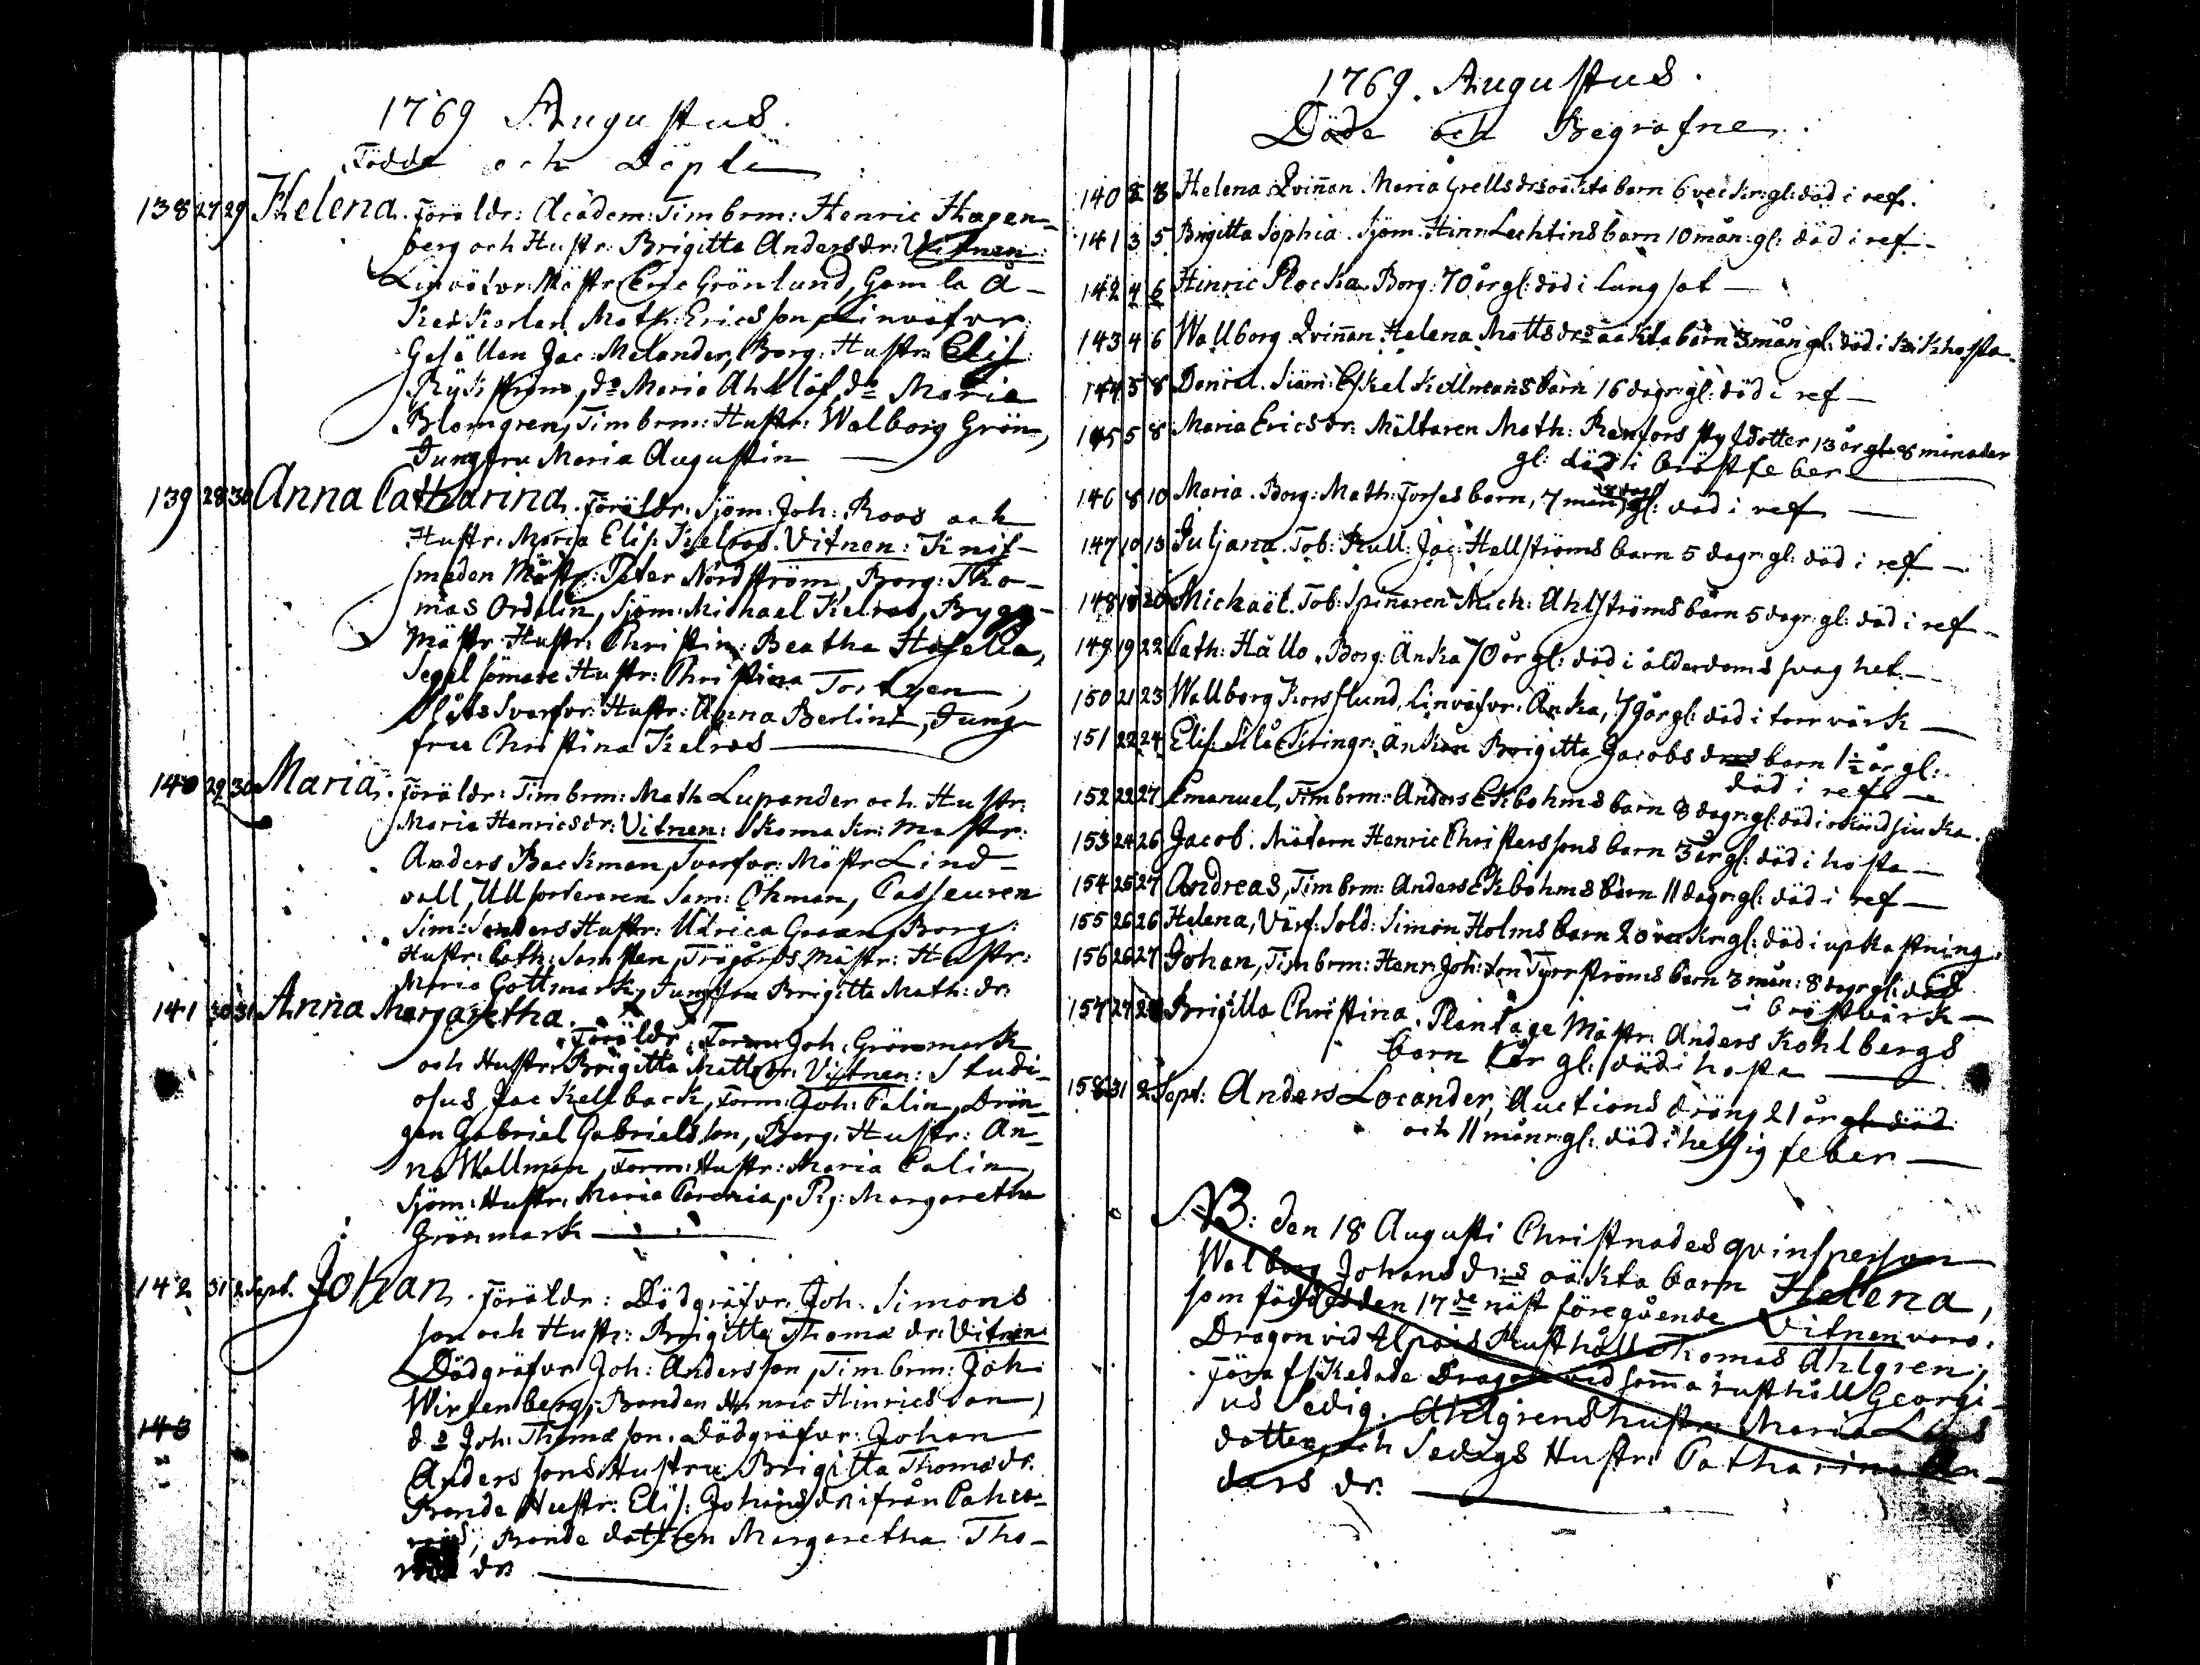 1769 Augustus.
Födde och Döpte
138 27 29 Helena. Föräldr: Academ: Timbrm: Henric Hagen-
berg och Hustr: Brigitta Andersdr: Vitnen:
Linväfvr: Mästr Eric Grönlund, Gamla Å-
kerkarlen Math: Ericsson, Linväfvr
Gesällen Jac: Melander, Borg: Hustr: Elis:
Rykström, do Maria Ahllöf, do Maria
Blomgren, Timbrm: Hustr: Walborg Grön,
Jungfru Maria Augustin
139 28 30 Anna Catharina. Föräldr: Sjöm: Joh: Roos och
Hustr: Maria Elis: Kelros. Vitnen: Knif-
smeden Mästr: Peter Nordström, Borg: Tho-
mas Ordelin, Sjöm: Michael Kelros, Bygg-
mästr: Hustr: Christin: Beatha Haselia,
Segelsömare Hustr: Christina
Svarfvr: Hustr: Anna Berlint, Jung-
fru Christina Kelros
140 29 30 Maria. Föräldr: Timbrm: Math Lupander och Hustr:
Maria Henricsdr: Vitnen: Skomakr: Mästr:
Anders Backman, Svarfvr: Mästr Lind-
vall, Ullsorteraren Sam: Öhman, Casseuren
Sim: Hustr: Ulrica Graan, Borg:
Hustr: Cath: Samsten, Trägårds Mästr: Hustr:
Maria Gottmark, Jungfru Brigitta Math: dr:
141 30 31 Anna Margaretha.
Föräldr: Joh: Grönmark
och Hustr: Brigitta Mattsdr: Vittnen: Studi-
osus Jac Kellback, Form: Joh: Palin, Drän-
gen Gabriel Gabrielsson, Borg: Hustr: An-
na Wallman, Form: Hustr: Maria Palin,
Sjöm: Hustr: Maria Pareria, Pig: Margaretha
Grönmark
142 31 2 Sept. Johan. Föräldr: Dödgräfvr: Joh: Simons
son och Hustr: Brigitta Thomædr: Vitnen
Dödgräfvr: Joh: Andersson, Timbrm: Joh:
Wirtenberg, Bonden Hinric Hinricsson,
do Joh: Thomæson. Dödgräfvr: Johan
Anderssons Hustru Brigitta Thomædr:
Bonde Hustr: Elis: Johansdr ifrån
143
Bonde dottren Margaretha Tho-
dr
1769. Augustus.
Döde och Begrafne.
140 8 8 Helena. Qviñan Maria Grelsdrs oäkta barn 6 veckr: gl: död i ref.
141 3 5 Brigitta Sophia. Sjöm: Hinr: Lechtins barn 10 mån: gl: död i ref
142 4 6 Hinric Plocka. Borg: 70 år gl: död i lungsot
143 4 6 Wallborg Qviñan Helena Mattsdrs oäkta barn 3 mån gl: död i kikhosta.
144 5 8 Daniel. Siöm: Eskel Kellmans barn 16 dagr: gl: död i ref
145 5 8 Maria Ericsdr: Mältaren Math: Renfors styfdotter 13 år gl 8 månader
gl: död i bröstfeber
146 8 10 Maria. Borg: Math: Forsses barn, 7 mån: gl: död i ref
147 10 13 Juljana. Tob: Rull: Jac: Hellströms barn 5 dagr: gl: död i ref
148 18 20 Michaël. Tob: Spiñaren Mich: Ahlströms barn 5 dagr: gl: död i ref
149 19 22 Cath: Hållo. Borg: Änka 70 år gl: död i ålderdoms svaghet
150 21 23 Wallborg Korsflund, Linväfvr: Änka, 79 år gl: död i torrvärk
151 22 24 Elis: Slåtkringr: Änkan Brigitta Jacobs barn 1½ år gl:
död i ref
152 22 27 Emanuel, Timbrm: Anders Ekbohms barn 8 dagr: gl: död i okänd siuka.
153 24 26 Jacob. Mätarn Henric Christerssons barn 3 år gl: död i hosta
154 25 27 Andreas, Timbrm: Anders Ekbohms barn 11 dagr: gl: död i ref
155 26 26 Helena, Värf: Sold: Simon Holms barn 20 veckr: gl: död i upkastning.
156 26 27 Johan, Timbrm: Henr: Joh: son Tyrrströms barn 3 mån: 8 dagr gl: död
i bröstvärk
157 27 28 Brigitta Christina. Plantage Mästr: Anders Kohlbergs
barn 1 år gl: död i hosta
158 31 2 Sept: Anders Locander, Auctions dräng 21 år gl: död
och 11 månr: gl: död i hetsig feber
NB: den 18 Augusti Christnades qvinsperson
Walborg Johansdr:s oäkta barn Helena,
som föddes den 17de näst föregående Vitnen voro.
Dragon vid Rusthåll Thomas Ahlgren,
Förafskedade Dragon vid sam̄a rusthåll Georgi-
us Sedig. Ahlgrens hustru Maria Lars
dotter och Sedigs Hustr: Catharina An-
ders dr: